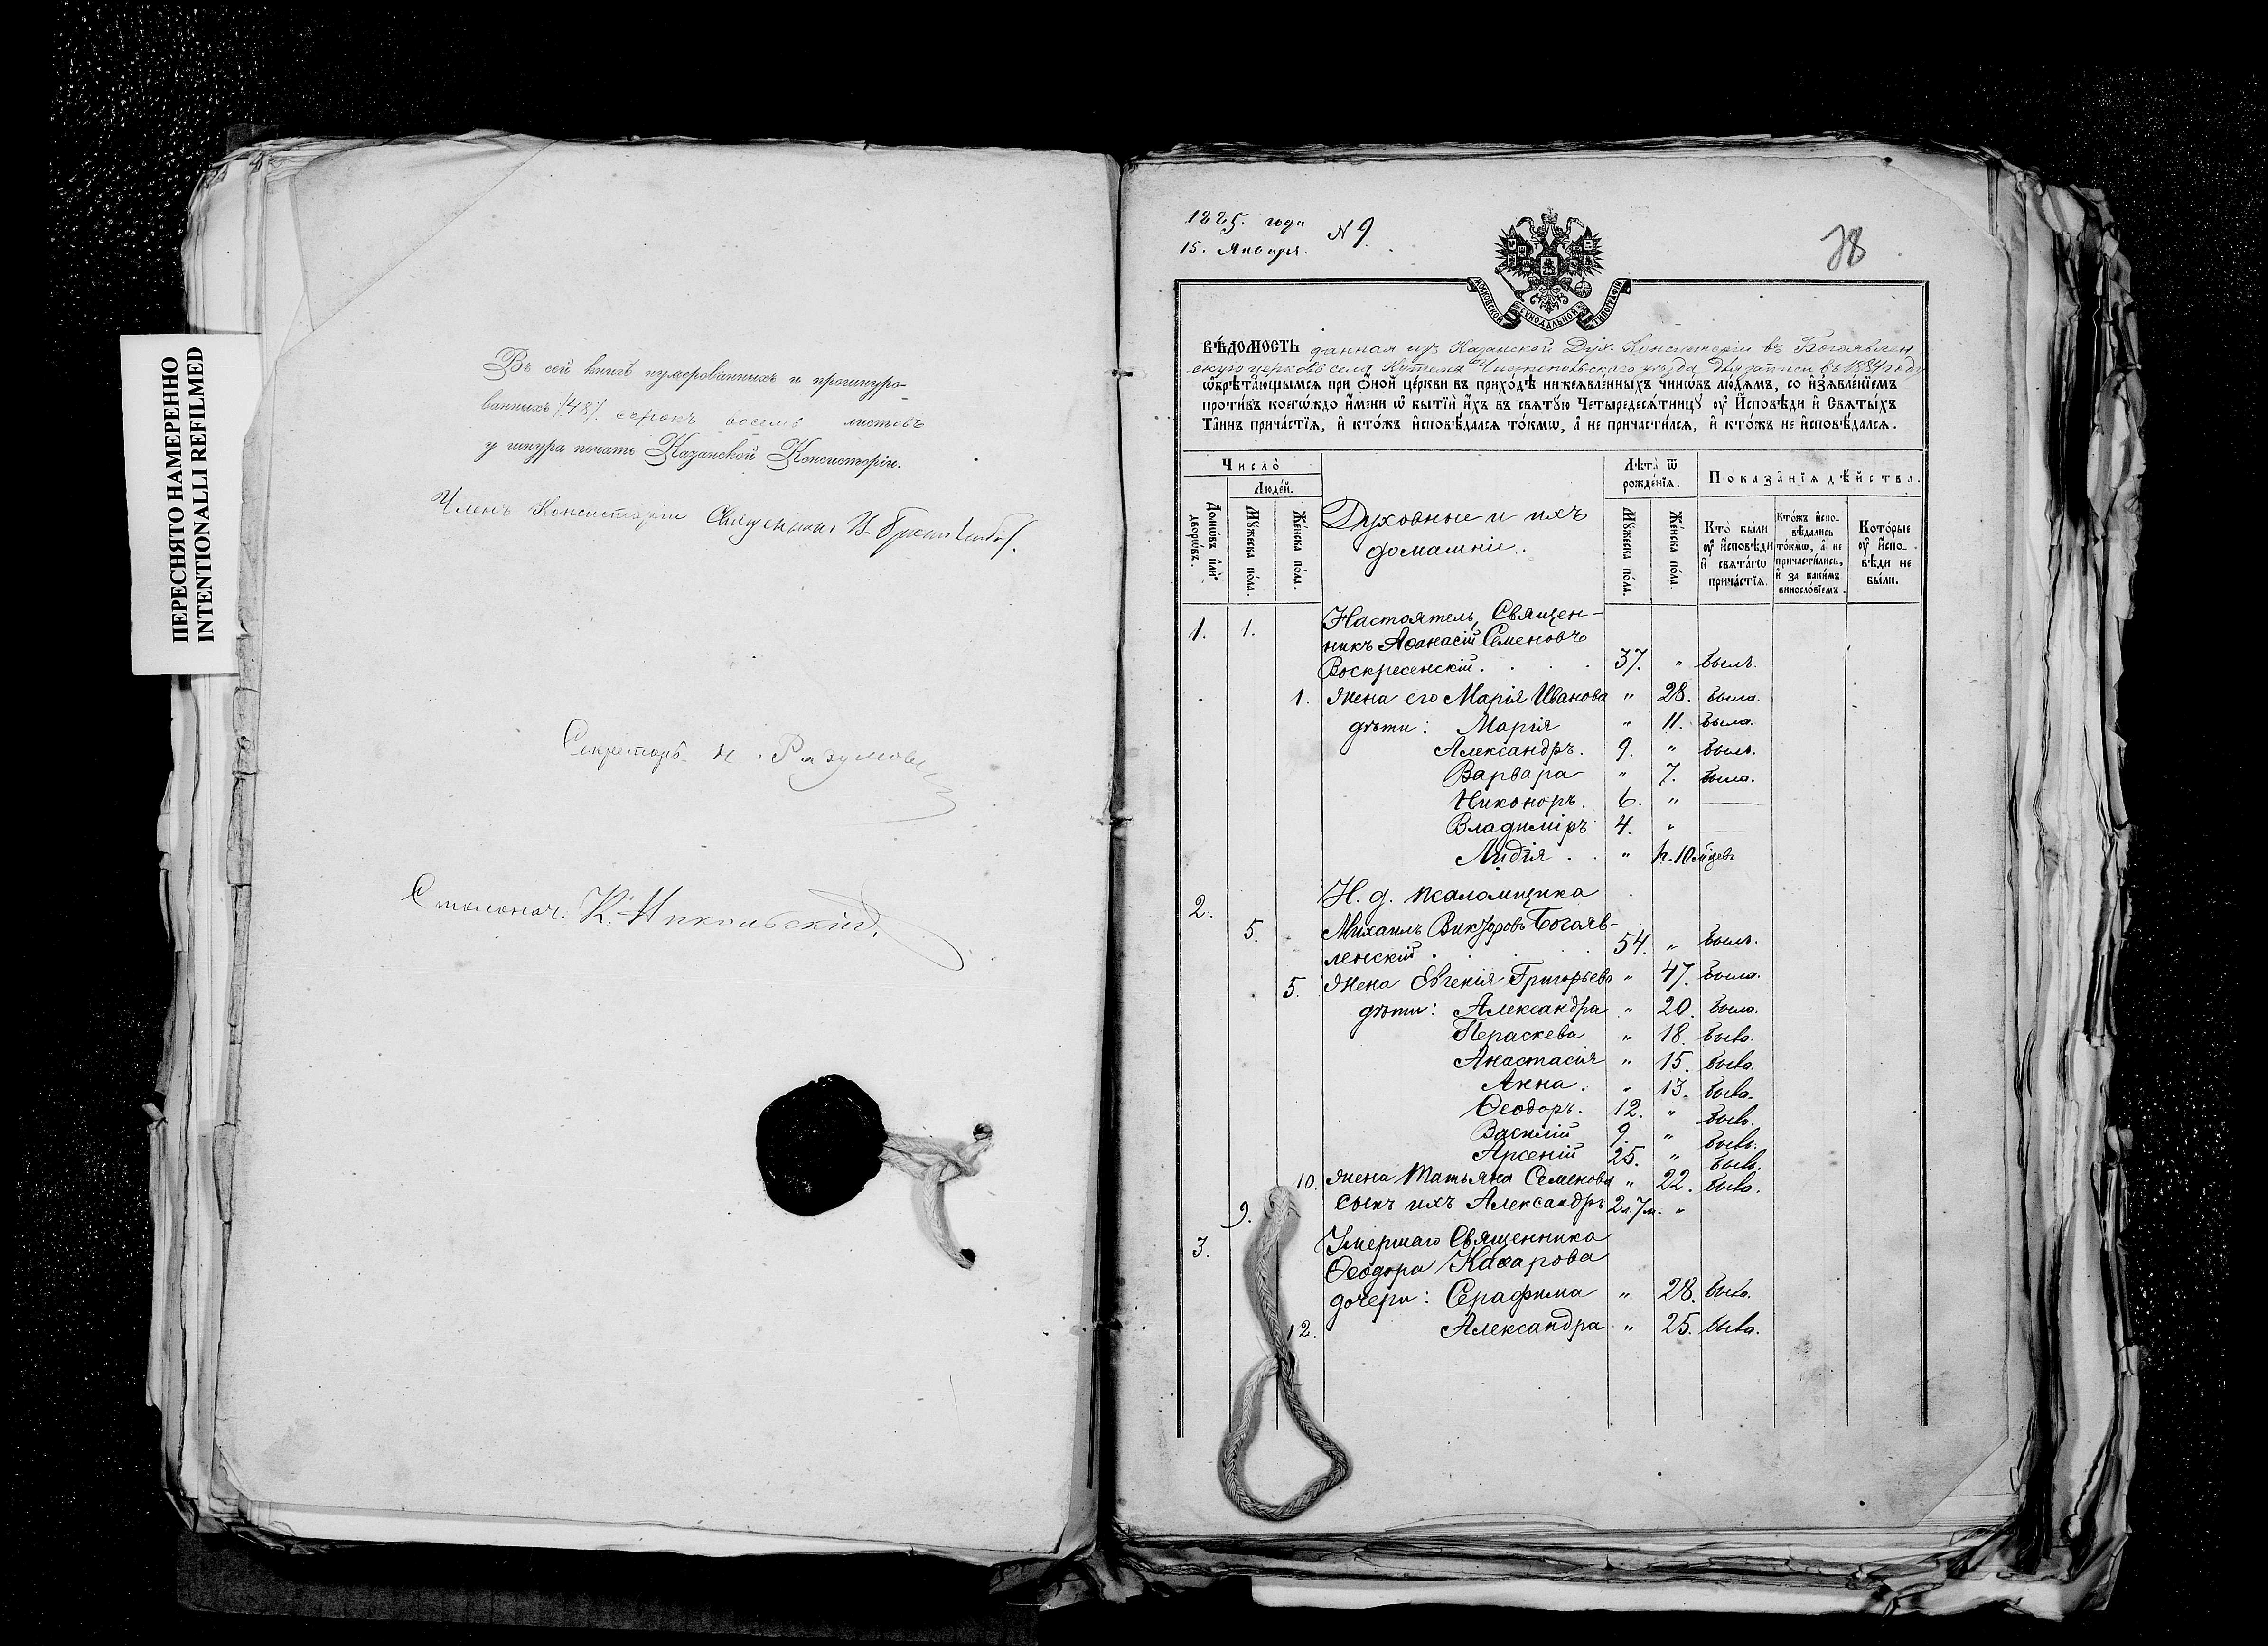 ПЕРЕСНЯТО НАМЕРЕННО
INTENTIONALLI REFILMED
Въ сей книгѣ нумерованныхъ и прошнуро-
ванныхъ /48/ сорокъ восемь листовъ
у шнура печать Казанской Консисторіи.
Членъ Консисторіи Священникъ
Секретарь Н. Разумовъ
Столонач. К. Никольскій
1885. года
15. Января. N 9.
МОСКОВСКОЙ СѴНОДАЛЬНОЙ ТИПОГРАФІИ
ВѢДОМОСТЬ данная изъ Казанской Дух. Консисторіи въ Богоявлен
скую церковь села Чистопольскаго уѣзда для записи въ 1884 году
ѡбрѣтающымся при ѻной церкви въ приходѣ нижеявленныхъ чинѡвъ людямъ, со изъявленіемъ
противъ коегѡждо имени ѡ бытіи ихъ въ святую Четыредесятницу оу Исповѣди и Святыхъ
Таинъ причастія, и ктожъ исповѣдался токмѡ, а не причастился, и ктожъ не исповѣдался.
Число
Людей.
Домѡвъ или дворѡвъ.
Мужеска пола.
Женска пола.
Духовные и ихъ
домашніе.
Лѣта ѿ
рожденія.
Мужеска пола.
Женска пола.
Показанія дѣйства.
Кто были оу исповѣди и святагѡ причастія.
Ктожъ исповѣдались токмѡ, а не причастились, и за какимъ винословіемъ.
Которые оу исповѣди не были.
1. 1. Настоятель, Священ-
никъ Аѳанасій Семеновъ
Воскресенскій. 37. " былъ.
1. Жена его Марія Иванова " 28. была.
дѣти: Марія " 11. была.
Александръ. 9. " былъ.
Варвара " 7. была.
Никоноръ. 6. "
Владиміръ 4. "
Лидія . . " 10 мѣсцевъ
2. Н. д. псаломщика
5. Михаилъ Викторовъ Богояв-
ленскій . 54. " былъ.
5. Жена Евгенія Григорьева " 47. была.
дѣти: Александра " 20. была.
Параскева " 18. была.
Анастасія " 15. была.
Анна . " 13. была.
Ѳеодоръ. 12. " былъ.
Василій 9. " былъ.
Арсеній 25. " былъ.
10. Жена Татьяна Семенова " 22. была.
9. Сынъ ихъ Александръ 2л.7м. "
3. Умершаго Священника
Ѳеодора
дочери: Серафима " 28. была.
12. Александра " 25. была.